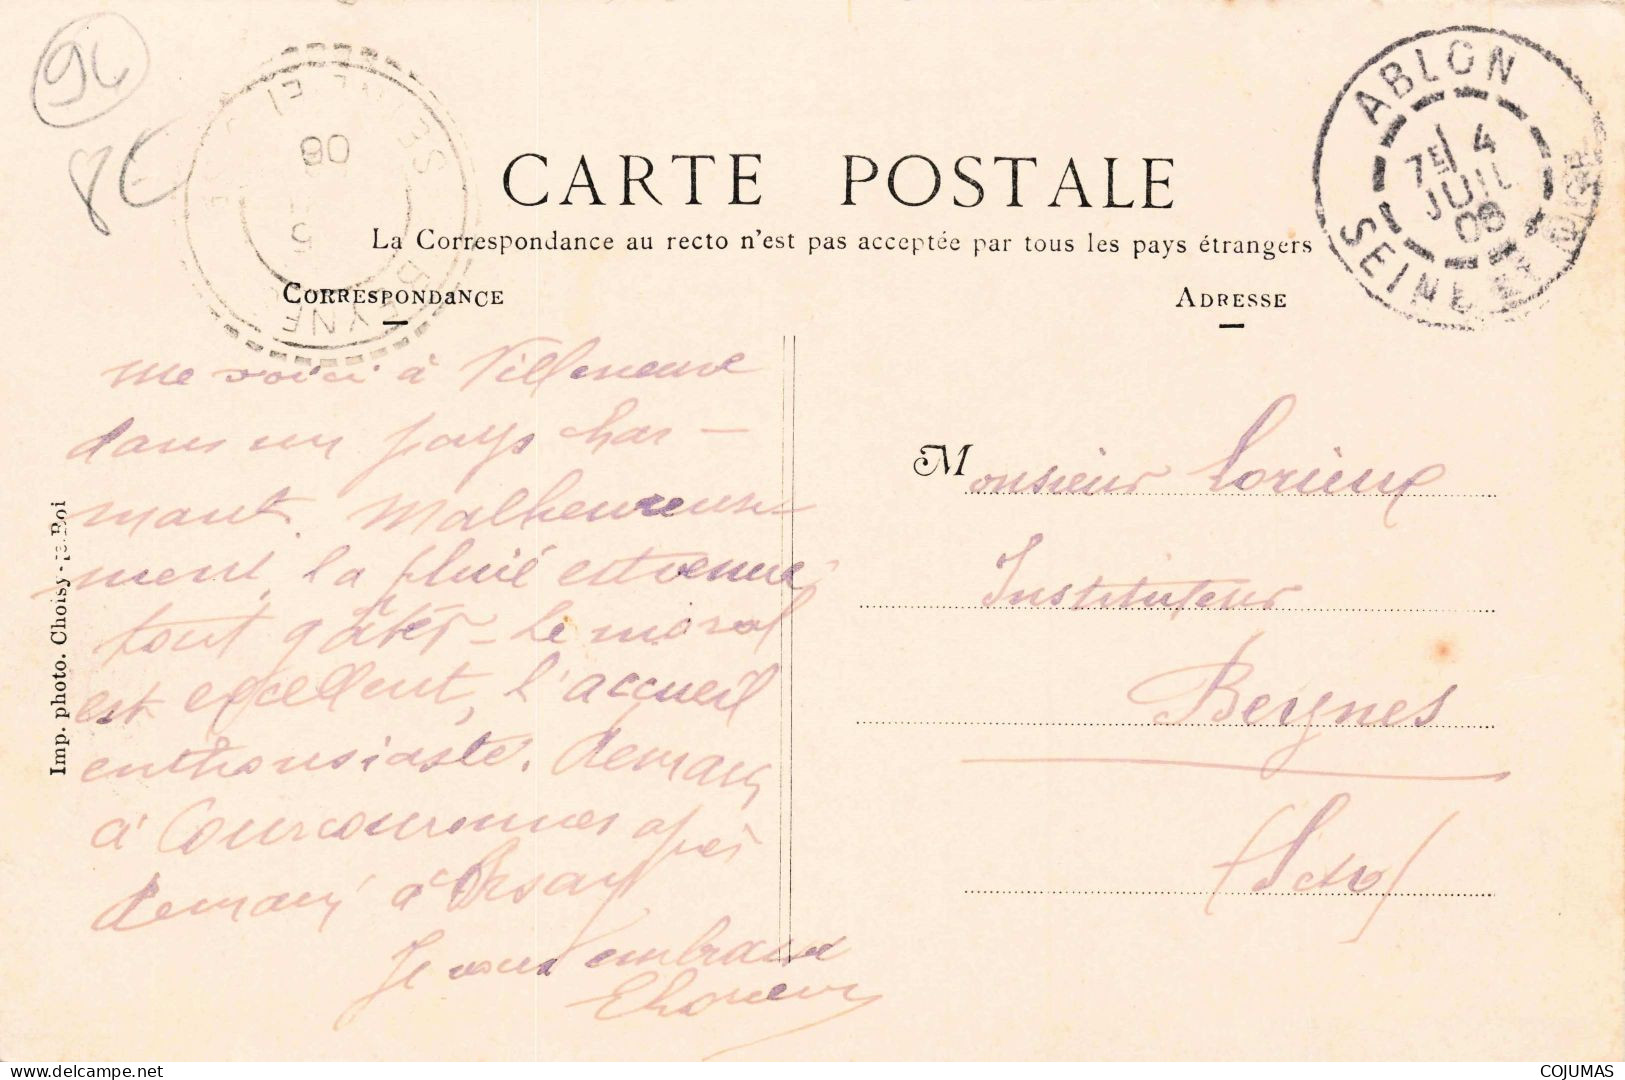 94
8€
ABLON
7E 4
JUIL
08
SEINE ET OISE
SEINE ET
08
5
BEYNE
CARTE POSTALE
La Correspondance au recto n'est pas acceptée par tous les pays étrangers
CORRESPONDANCE
ADRESSE
me voici à Villeneuve
dans un pays char-
mant. Malheureuse-
ment, la pluie est venue
tout gâter - Le moral
est excellent, l'accueil
enthousiaste. Demain
à Courcouronnes après
demain à Orsay
Je vous embrasse
Monsieur Lorieux
Instituteur
Beynes
(S et O)
Imp. photo. Choisy-le-Roi
delcampe.net
COJUMAS